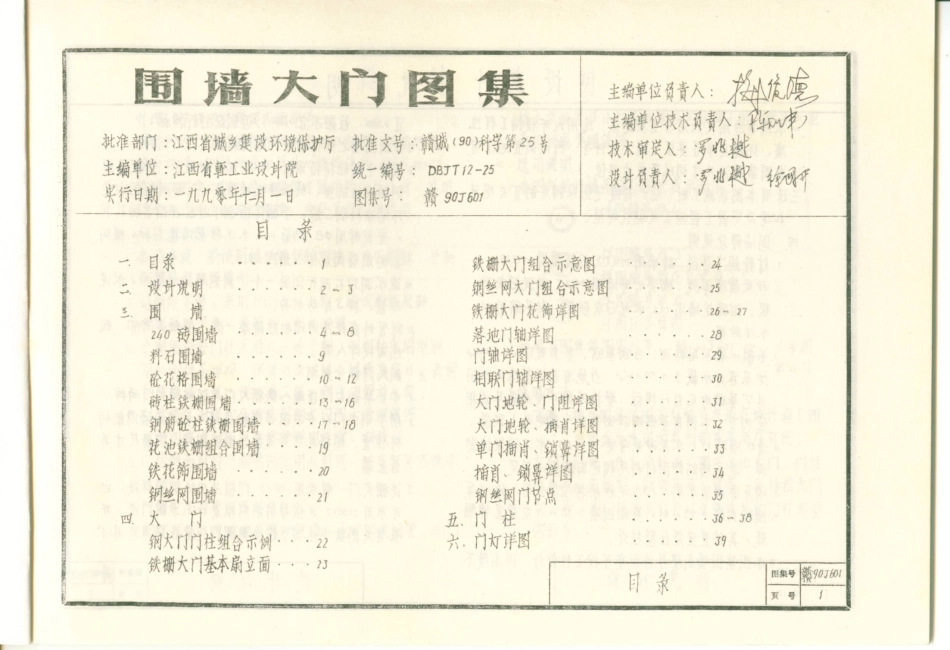 围墙大门图集
批准部门：江西省城乡建设环境保护厅 批准文号：赣城(90)科字第25号
主编单位：江西省轻工业设计院 统一编号：DBJT12-25
实行日期：一九九〇年十二月一日 图集号：赣90J601
主编单位负责人：
主编单位技术负责人：
技术审定人：
设计负责人：
目录
一. 目录 ······· 1
二. 设计说明 ······· 2~3
三. 围 墙
240砖围墙 ······· 4~8
料石围墙 ······· 9
砼花格围墙 ······· 10~12
砖柱铁栅围墙 ····· 13~16
钢筋砼柱铁栅围墙 ···· 17~18
花池铁栅组合围墙 ···· 19
铁花饰围墙 ······ 20
钢丝网围墙 ······ 21
四. 大 门
钢大门门柱组合示例 ··· 22
铁栅大门基本扇立面 ··· 23
铁栅大门组合示意图 ······ 24
钢丝网大门组合示意图 ······ 25
铁栅大门花饰详图 ······ 26~27
落地门轴详图 ······ 28
门轴详图 ······ 29
相联门轴详图 ······ 30
大门地轮、门阻详图 ······ 31
大门地轮、插肖详图 ······ 32
单门插肖、锁鼻详图 ······ 33
插肖、锁鼻详图 ······ 34
钢丝网门节点 ······ 35
五. 门 柱 ······ 36~38
六. 门灯详图 ······ 39
目录
图集号 赣90J601
页号 1